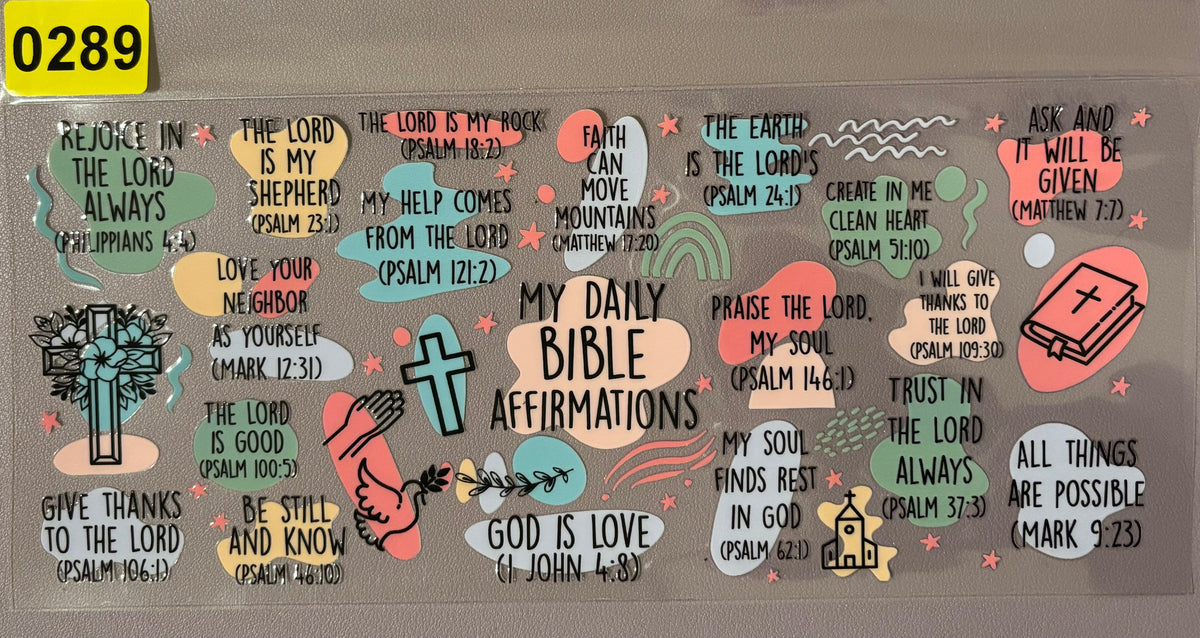 0289
REJOICE IN
THE LORD
ALWAYS
(PHILIPPIANS 4:4)
THE LORD
IS MY
SHEPHERD
(PSALM 23:1)
THE LORD IS MY ROCK
(PSALM 18:2)
MY HELP COMES
FROM THE LORD
(PSALM 121:2)
FAITH
CAN
MOVE
MOUNTAINS
(MATTHEW 17:20)
THE EARTH
IS THE LORD'S
(PSALM 24:1)
CREATE IN ME
CLEAN HEART
(PSALM 51:10)
ASK AND
IT WILL BE
GIVEN
(MATTHEW 7:7)
LOVE YOUR
NEIGHBOR
AS YOURSELF
(MARK 12:31)
MY DAILY
BIBLE
AFFIRMATIONS
PRAISE THE LORD,
MY SOUL
(PSALM 146:1)
I WILL GIVE
THANKS TO
THE LORD
(PSALM 109:30)
THE LORD
IS GOOD
(PSALM 100:5)
TRUST IN
THE LORD
ALWAYS
(PSALM 37:3)
MY SOUL
FINDS REST
IN GOD
(PSALM 62:1)
ALL THINGS
ARE POSSIBLE
(MARK 9:23)
GIVE THANKS
TO THE LORD
(PSALM 106:1)
BE STILL
AND KNOW
(PSALM 46:10)
GOD IS LOVE
(1 JOHN 4:8)